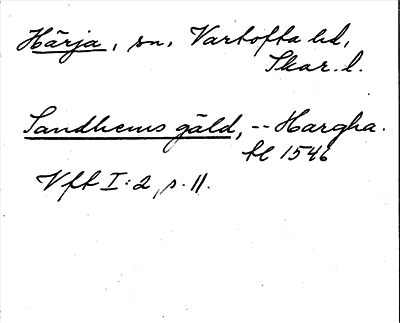 Härja, sn, Vartofta hd,
Skar. l.
Sandhems gäld, -- Hargha.
tl 1546
Vft I:2, s. 11.